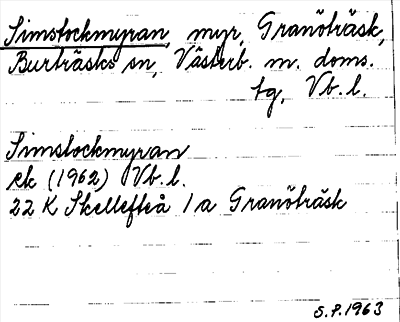 Simstockmyran, myr, Granöträsk,
Burträsks sn, Västerb. m. doms.
tg, Vb. l.
Simstockmyran
ek (1962) Vb. l.
22 K Skellefteå 1a Granöträsk
S.P. 1963